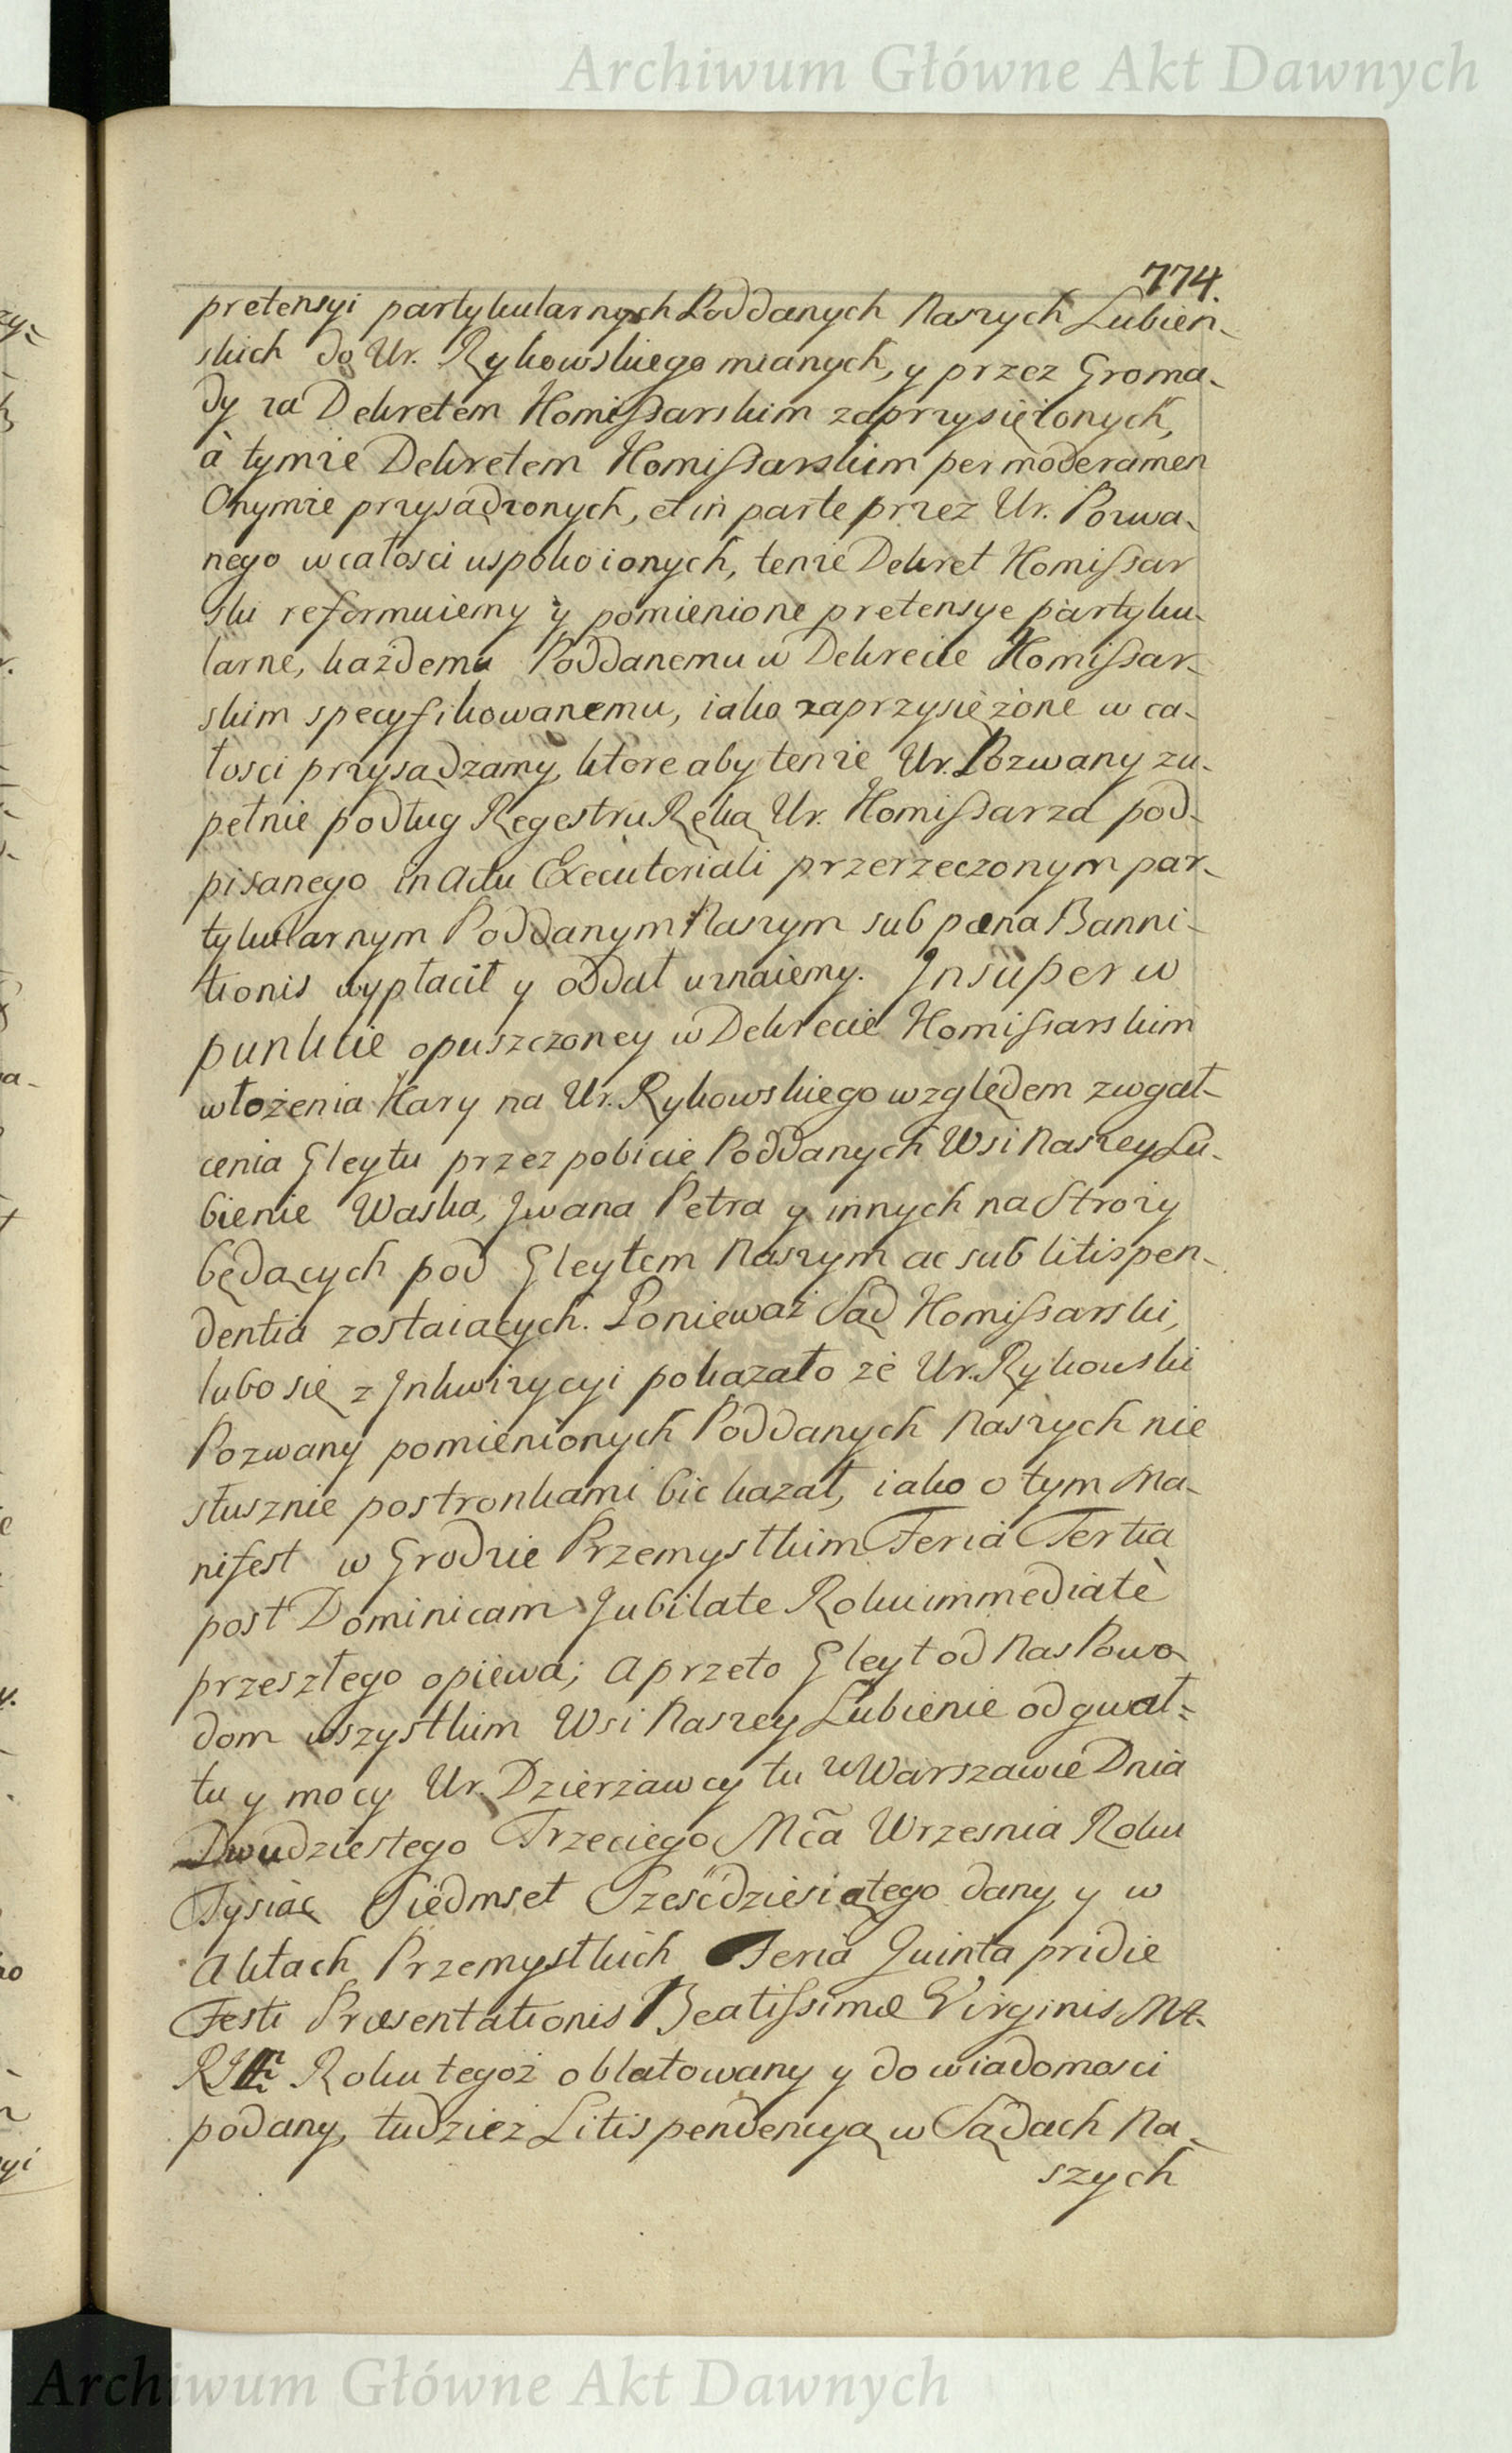 Archiwum Główne Akt Dawnych
774.
pretensyi partykularnych Poddanych Naszych Lubien-
skich do Ur. Rykowskiego mianych, y przez Groma-
dy za Dekretem Kommissarskim zaprzysiężonych,
à tymże Dekretem Komissarskim per moderamen
Onymże przysądzonych, et in parte przez Ur. Pozwa-
nego w całosci uspokoionych, tenże Dekret Komissar
ski reformuiemy y pomienione pretensye partyku-
larne, każdemu Poddanemu w Dekrecie Komissar-
skim specyfikowanemu, iako zaprzysiężone w ca-
łosci przysądzamy, ktore aby tenże Ur. Pozwany zu-
pełnie podług Regestru Ręką Ur. Komissarza pod-
pisanego in Actu Executoriali przerzeczonym par-
tykularnym Poddanym Naszym sub pæna Banni-
tionis wypłacił y oddał uznaiemy. Insuper w
punkcie opuszczoney w Dekrecie Komissarskim
włożenia Kary na Ur. Rykowskiego względem zwgał-
cenia Gleytu przez pobicie Poddanych Wsi Naszey Lu-
bienie Waska, Iwana Petra y innych na Stroży
będących pod Gleytem Naszym ac sub litispen-
dentia zostaiących. Ponieważ Sąd Komissarski,
lubo się z Inkwizycyi pokazało że Ur. Rykowski
Pozwany pomienionych Poddanych Naszych nie
słusznie postronkami bic kazał, iako o tym Ma-
nifest w Grodzie Przemyskim Feria Tertia
post Dominicam Jubilate Roku immediatè
przeszłego opiewa; a przeto Gleyt od Nas Powo-
dom wszystkim Wsi Naszey Lubienie od gwał=
tu y mocy Ur. Dzierżawcy tu w Warszawie Dnia
Dwudziestego Trzeciego Mca Wrzesnia Roku
Tysiąc Siedmset Szesćdziesiątego dany y w
Aktach Przemyskich Feria Quinta pridie
Festi Præsentationis Beatissimæ Virginis MA-
Roku tegoż oblatowany y do wiadomosci
podany, tudzież Litispendencyą w Sądach Na-
szych
Archiwum Główne Akt Dawnych